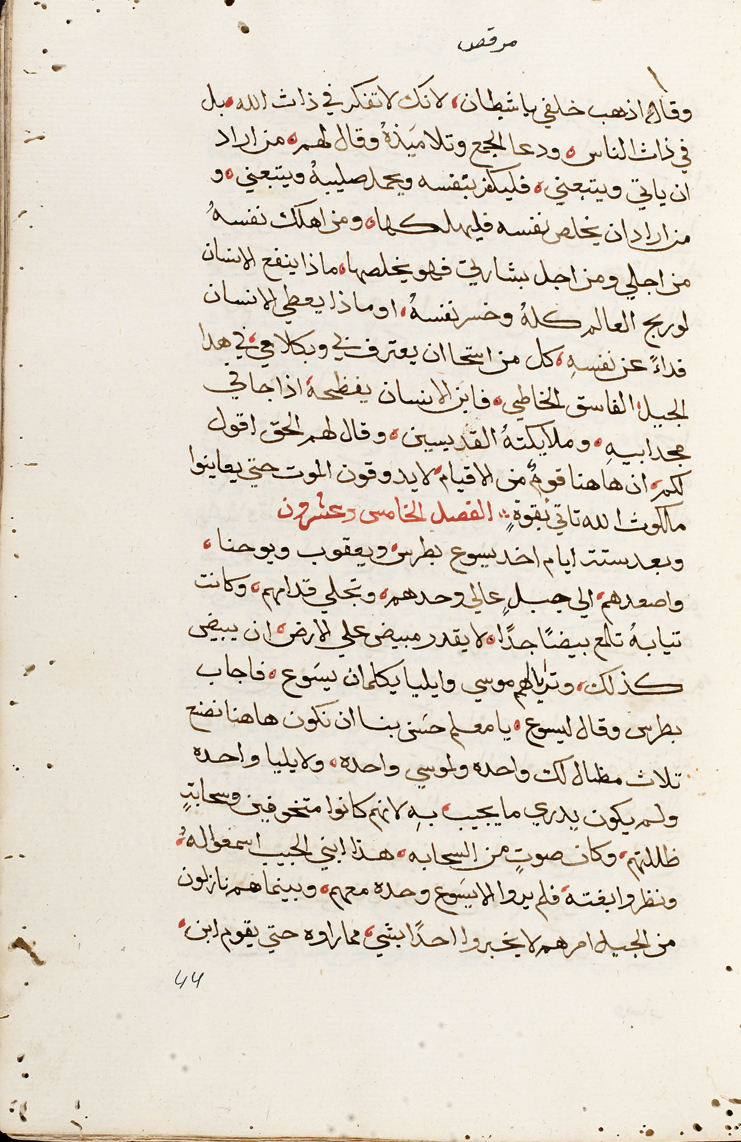 مرقص
وقال اذهب خلفي ياشيطان، لانك لا تفكر في ذات الله، بل
في ذات الناس، ودعا الجمع وتلاميذهُ وقال لهم، من اراد
ان ياتي ويتبعني، فليكفر بنفسه ويحمل صليبهُ ويتبعني، و
من اراد ان يخلص نفسه فليهلكها، ومن اهلك نفسهُ
من اجلي ومن اجل بشارتي فهو يخلصها، ماذا ينفع الانسان
لو ربح العالم كلهُ وخسر نفسهُ، او ماذا يعطي الانسان
فداءً عن نفسهِ، كل من استحا ان يعترف بي وبكلامي، في هدا
الجيل، الفاسق الخاطي، فابن الانسان يفظحهُ اذا جا في
مجد ابيهِ، وملايكتهُ القديسين، وقال لهم الحق اقول
لكم، ان هاهنا قومٌ من الاقيام، لا يدوقون الموت حتي يعاينوا
ملكوت الله تاتي بقوةٍ، الفصل الخامس وعشرون
وبعد ستت ايام اخد يسوع بطرس، ويعقوب ويوحنا،
واصعدهم، الي جبلٍ عالي وحدهم، وتجلي قدامهم، وكانت
تيابهُ تلمع بيضًا جدًا، لا يقدر مبيض علي الارض، ان يبيض
كذلك، وترايا لهم موسي وايليا يكلمان يسوع، فاجاب
بطرس وقال ليسوع، يا معلم حسن بنا ان نكون هاهنا نصنع
تلات مظال لك واحده ولموسي واحده، ولايليا واحده
ولم يكون يدري ما يجيب بهِ لانهم كانوا متخوفين وسحابةٍ
ظللتهم، وكان صوتٍ من السحابه، هذا ابني الحبيب اسمعوا لهُ،
ونظروا بغتة، فلم يروا الا يسوع وحده معهم، وبينما هم نازلون
من الجبل امرهم لا يخبروا احدًا بشي، مما راوه حتي يقوم ابن،
٤٤